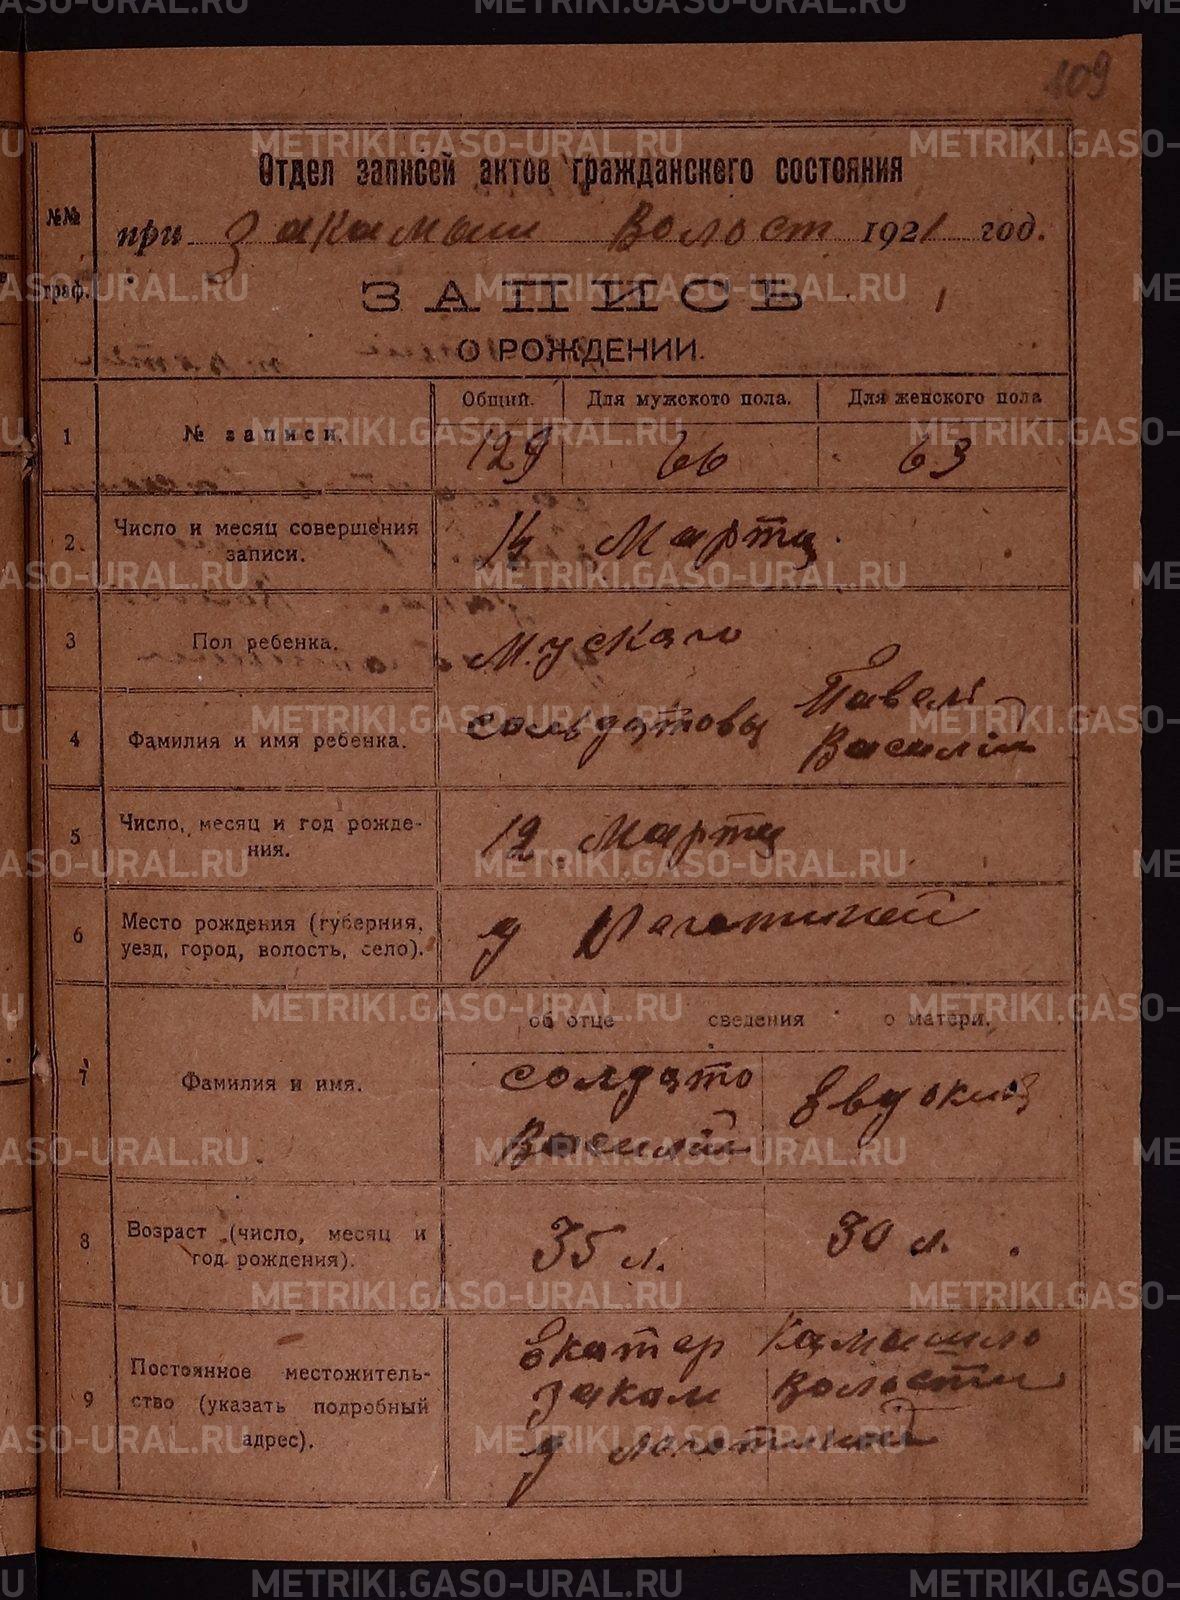 109
Отдел записей актов гражданского состояния
№№ граф.
при Закамыш Волост 1921 год.
ЗАПИСЬ
О РОЖДЕНИИ.
1 № записи. Общий. Для мужского пола. Для женского пола
129 66 63
2 Число и месяц совершения записи. 14 Марта
3 Пол ребенка. Мускаго
4 Фамилия и имя ребенка. солдатовы Павел Василий
5 Число, месяц и год рождения. 12 Марта
6 Место рождения (губерния, уезд, город, волость, село). д
об отце сведения о матери.
7 Фамилия и имя. солдато Василий Евдокия
8 Возраст (число, месяц и год рождения). 35 л. 30 л.
9 Постоянное местожительство (указать подробный адрес). Екатер Камышло
закам Волости
д
METRIKI.GASO-URAL.RU